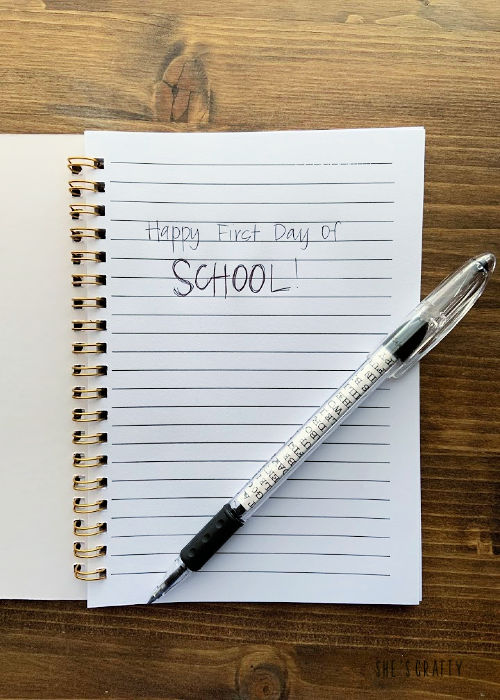 Happy First Day Of
SCHOOL!
SHE'S CRAFTY